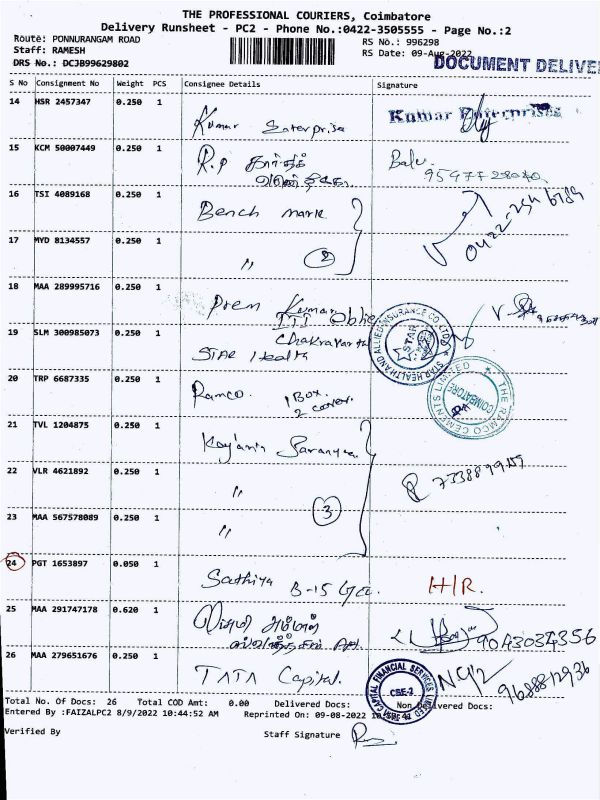 THE PROFESSIONAL COURIERS, Coimbatore
Delivery Runsheet - PC2 - Phone No.:0422-3505555 - Page No.:2
Route: PONNURANGAM ROAD
RS No.: 996298
Staff: RAMESH
RS Date: 09-Aug-2022
DRS No.: DCJB99629802
DOCUMENT DELIVE
S No Consignment No Weight PCS Consignee Details Signature
14 HSR 2457347 0.250 1
Kumar Enterprise Kumar Enterprises
15 KCM 50007449 0.250 1
R.P கார்த்திக் Balu
16 TSI 4089168 0.250 1
Bench mark 0422-254 6789
17 MYD 8134557 0.250 1
〃 2
18 MAA 289995716 0.250 1
Prem Kumar
19 SLM 300985073 0.250 1
Chakravarth
STAR Health
STAR HEALTH AND ALLIED INSURANCE CO LTD
STAR
20 TRP 6687335 0.250 1
Ramco. 1 Box.
2 cover.
THE RAMCO CEMENTS LIMITED
COIMBATORE
21 TVL 1204875 0.250 1
Saranya
22 VLR 4621892 0.250 1
〃
23 MAA 567578089 0.250 1
〃 3
24 PGT 1653897 0.050 1
Sathiya B-15 H/R.
25 MAA 291747178 0.620 1
அம்மன்
9043034356
26 MAA 279651676 0.250 1
TATA Capital. 9688812936
CAPITAL FINANCIAL SERVICES LIMITED
CBE-2
Total No. Of Docs: 26 Total COD Amt: 0.00 Delivered Docs: Non Delivered Docs:
Entered By :FAIZALPC2 8/9/2022 10:44:52 AM Reprinted On: 09-08-2022
Verified By Staff Signature